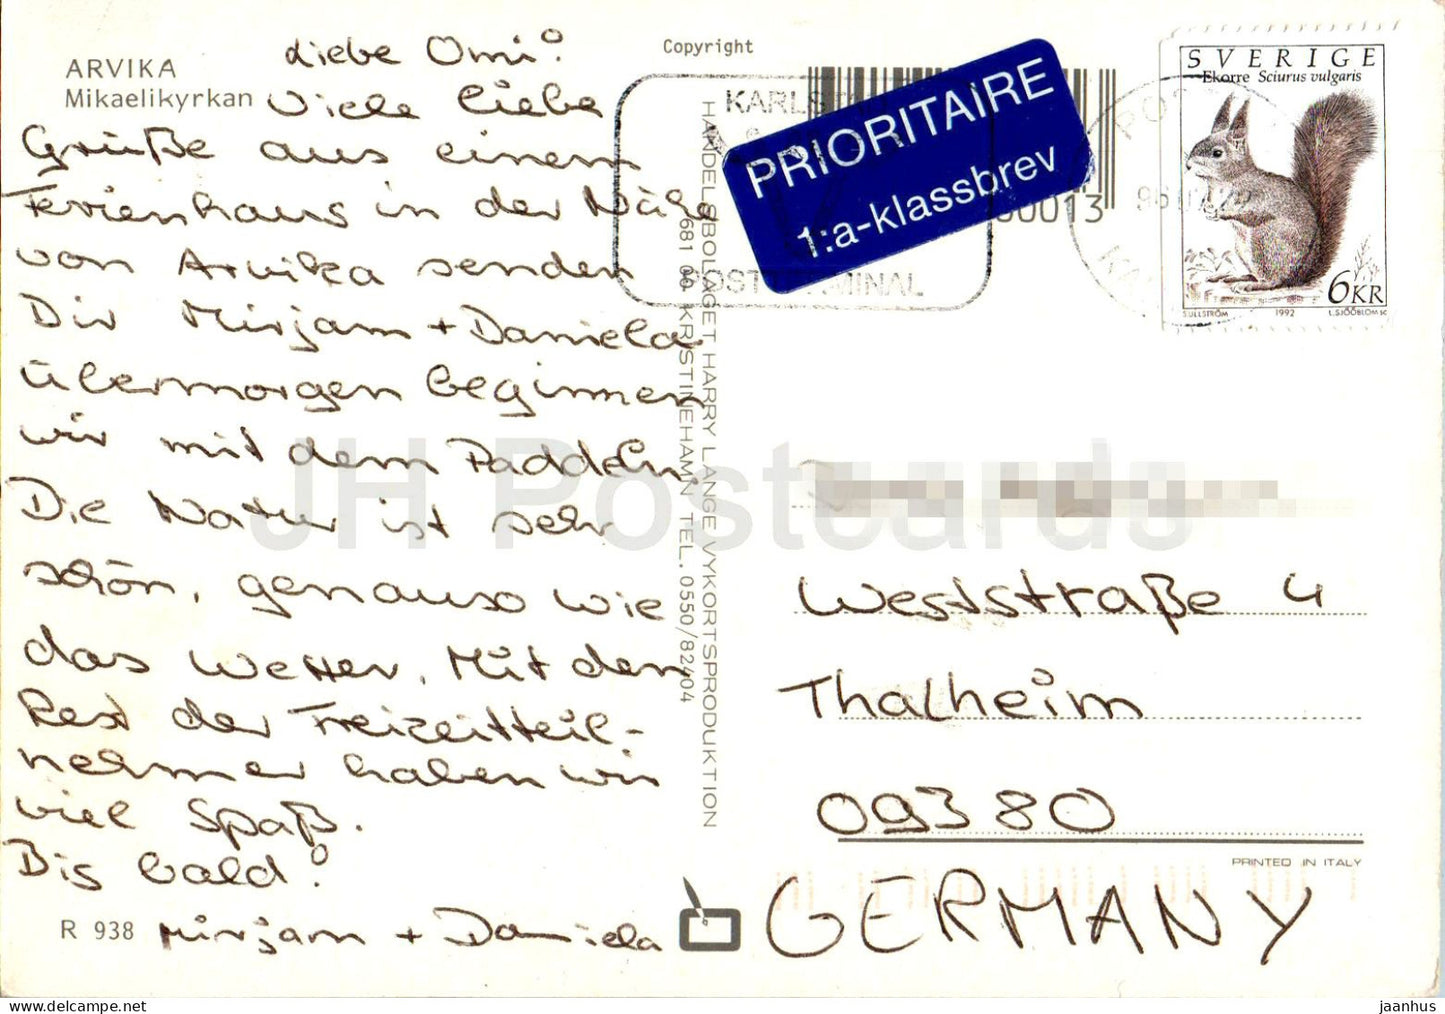 ARVIKA
Mikaelikyrkan
liebe Omi!
Viele liebe
Grüße aus einem
Ferienhaus in der Nähe
von Arvika senden
Dir Mirjam + Daniela
übermorgen beginnen
wir mit dem Paddeln.
Die Natur ist sehr
schön, genauso wie
das Wetter. Mit den
Rest der Freizeitteil-
nehmer haben wir
viel Spaß.
Bis bald!
Mirjam + Daniela
R 938
Copyright
KARLST
POSTTERMINAL
PRIORITAIRE
1:a-klassbrev
00013
SVERIGE
Ekorre Sciurus vulgaris
6KR
SULLSTRÖM 1992 L.SJÖÖBLOM SC
HANDELSBOLAGET HARRY LANGE VYKORTSPRODUKTION
681 00 KRISTINEHAMN TEL. 0550/82404
Weststraße 4
Thalheim
09380
GERMANY
PRINTED IN ITALY
JH Postcards
www.delcampe.net
jaanhus